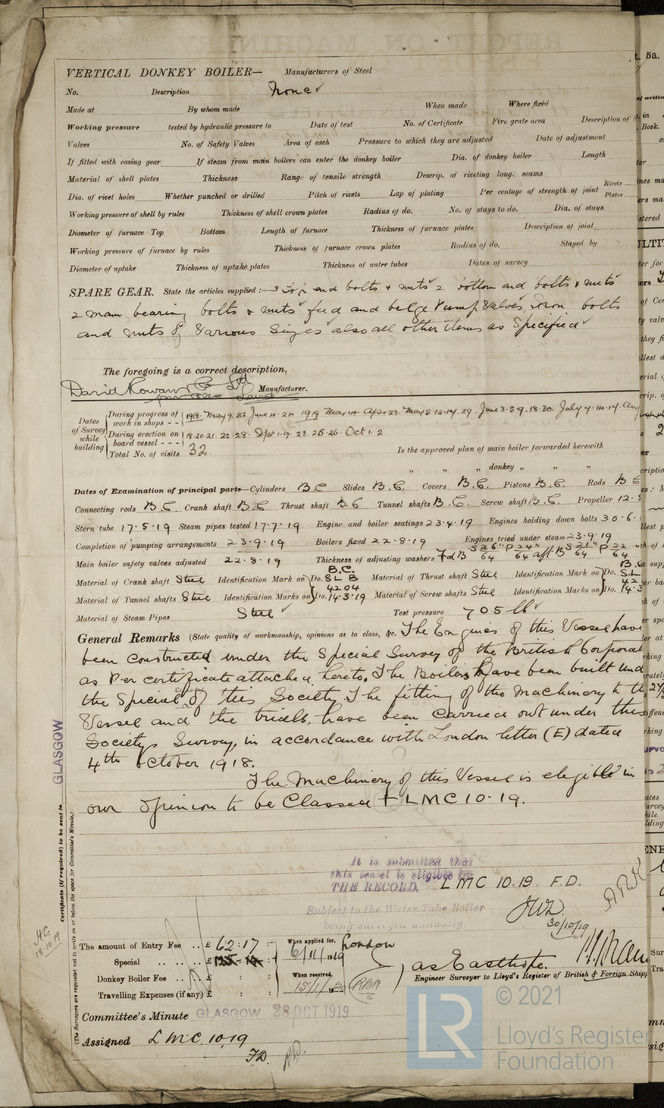 VERTICAL DONKEY BOILER— Manufacturers of Steel
No. Description None
Made at By whom made When made Where fixed
Working pressure tested by hydraulic pressure to Date of test No. of Certificate Fire grate area Description of
Valves No. of Safety Valves Area of each Pressure to which they are adjusted Date of adjustment
If fitted with easing gear If steam from main boilers can enter the donkey boiler Dia. of donkey boiler Length
Material of shell plates Thickness Range of tensile strength Descrip. of riveting long. seams
Dia. of rivet holes Whether punched or drilled Pitch of rivets Lap of plating Per centage of strength of joint Rivets Plates
Working pressure of shell by rules Thickness of shell crown plates Radius of do. No. of stays to do. Dia. of stays
Diameter of furnace Top Bottom Length of furnace Thickness of furnace plates Description of joint
Working pressure of furnace by rules Thickness of furnace crown plates Radius of do. Stayed by
Diameter of uptake Thickness of uptake plates Thickness of water tubes Dates of survey
SPARE GEAR. State the articles supplied:— 2 Top end bolts & nuts 2 bottom end bolts & nuts
2 main bearing bolts & nuts feed and bilge Pump Valves, Iron bolts
and nuts of various Sizes also all other items as Specified
The foregoing is a correct description,
David Rowan & Co Ltd Manufacturer.
Dates of Survey while building
During progress of work in shops - - 1918. May 9. 22 June 11. 21 1919 Mar 14 Apr 23. May 5. 12. 14. 29. June 3. 5. 9. 18. 30 July 7. 11. 14. 17 Aug
During erection on board vessel - - - 18. 20. 21. 22. 28. Sept 1. 9. 23. 25. 26. Oct 1. 2
Total No. of visits 32 Is the approved plan of main boiler forwarded herewith
" " " donkey " " "
Dates of Examination of principal parts—Cylinders B.C Slides B.C. Covers B.C. Pistons B.C. Rods B C
Connecting rods B.C. Crank shaft B.C Thrust shaft B.C Tunnel shafts B.C. Screw shaft B.C. Propeller 12.5
Stern tube 17.5.19 Steam pipes tested 17.7.19 Engine and boiler seatings 23.4.19 Engines holding down bolts 30.6.
Completion of pumping arrangements 23.9.19 Boilers fixed 22.8.19 Engines tried under steam 23.9.19
Main boiler safety valves adjusted 22.8.19 Thickness of adjusting washers
Material of Crank shaft Steel Identification Mark on Do. B.C. SLB 4204 14.3.19 Material of Thrust shaft Steel Identification Mark on Do.
Material of Tunnel shafts Steel Identification Marks on Do. Material of Screw shafts Steel Identification Marks on Do.
Material of Steam Pipes Steel Test pressure 705 lbs
General Remarks (State quality of workmanship, opinions as to class, &c. The Engines of this Vessel have
been constructed under the Special Survey of the British Corporat
as per certificate attached hereto, The Boilers have been built und
the Special of this Society The fitting of the Machinery to th
Vessel and the trials, have been carried out under this
Society's Survey, in accordance with London letter (E) dated
4th October 1918.
The Machinery of this Vessel is eligible in
our opinion to be Classed + LMC 10.19.
GLASGOW
Certificate (if required) to be sent to
(The Surveyors are requested not to write on or below the space for Committee's Minute.)
It is submitted that
this vessel is eligible for
THE RECORD. LMC 10.19. F.D.
Subject to the Water Tube Boiler
being surveyed annually.
30/10/19
The amount of Entry Fee .. £ 62 : 17 : When applied for, London
Special .. £ : : 6/11/1919
Donkey Boiler Fee .. £ : : When received,
Travelling Expenses (if any) £ : : 15/1/20
Engineer Surveyor to Lloyd's Register of British & Foreign Shipp
Committee's Minute GLASGOW 28 OCT 1919
Assigned LMC 10.19
F.D.
LR
© 2021
Lloyd's Register
Foundation